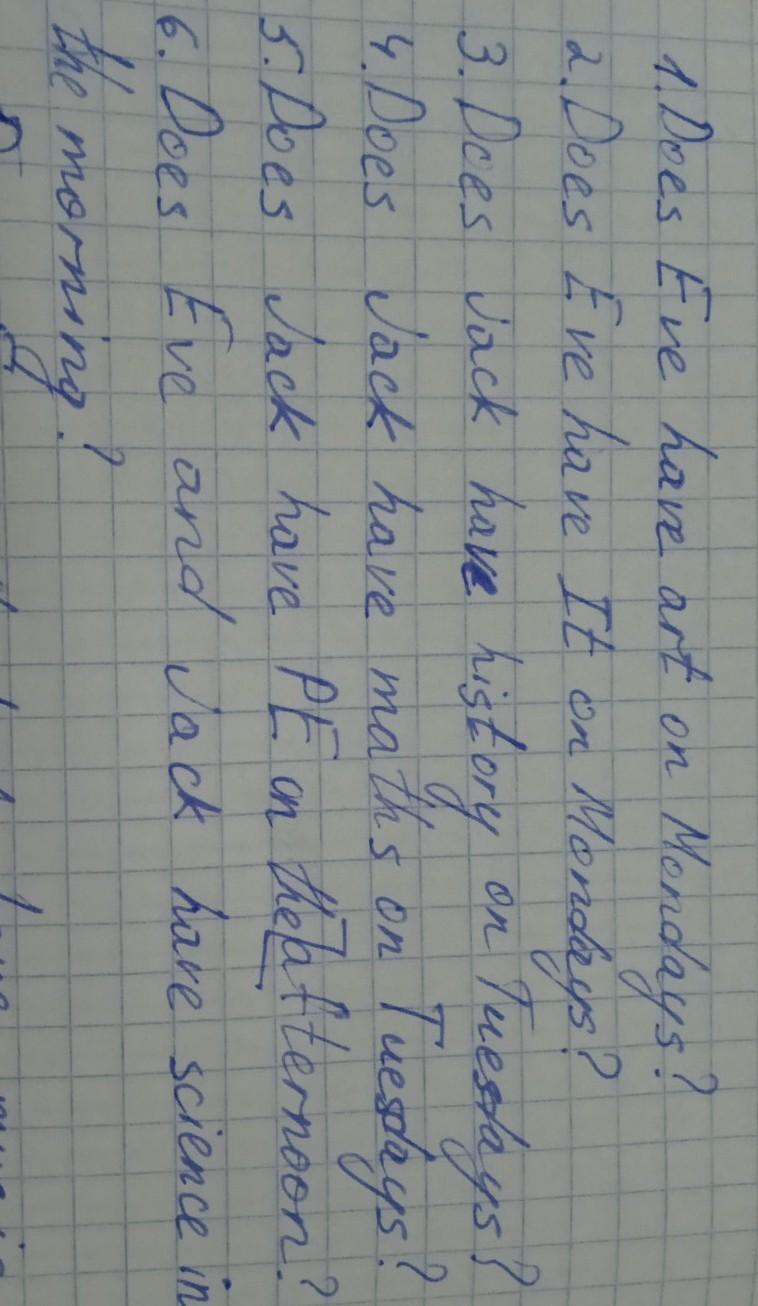 1. Does Eve have art on Mondays?
2. Does Eve have It on Mondays?
3. Does Jack have history on Tuesdays?
4. Does Jack have maths on Tuesdays?
5. Does Jack have PE on the afternoon?
6. Does Eve and Jack have science in
the morning?